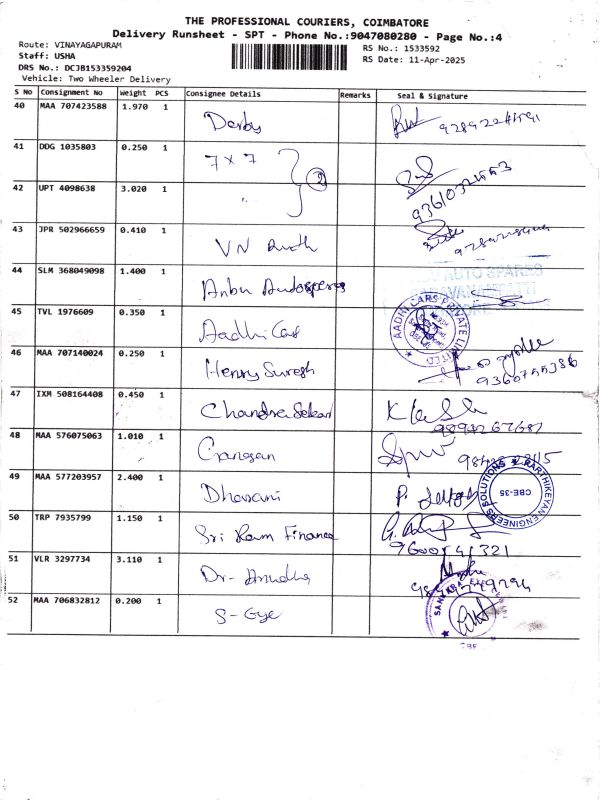 THE PROFESSIONAL COURIERS, COIMBATORE
Delivery Runsheet - SPT - Phone No.:9047080280 - Page No.:4
Route: VINAYAGAPURAM
Staff: USHA
DRS No.: DCJB153359204
Vehicle: Two Wheeler Delivery
RS No.: 1533592
RS Date: 11-Apr-2025
S No Consignment No Weight PCS Consignee Details Remarks Seal & Signature
40 MAA 707423588 1.970 1 Derby
41 DDG 1035803 0.250 1 7 x 7
2
42 UPT 4098638 3.020 1 "
43 JPR 502966659 0.410 1 VN
44 SLM 368049098 1.400 1 Anbu Autospares
AUTO SPARES
SARAVANAMPATTI
45 TVL 1976609 0.350 1 Aadhi Cars
AADHI CARS PRIVATE LIMITED
46 MAA 707140024 0.250 1 Henry Suresh
47 IXM 508164408 0.450 1 Chandra Sekar
48 MAA 576075063 1.010 1 Ganesan
49 MAA 577203957 2.400 1 Dharani
KARTHIKEYAN ENGINEERS SOLUTIONS
CBE-35
50 TRP 7935799 1.150 1 Sri Ram Finance
51 VLR 3297734 3.110 1 Dr- Anudha
52 MAA 706832812 0.200 1 S-Eye
SANKARA EYE
CBE